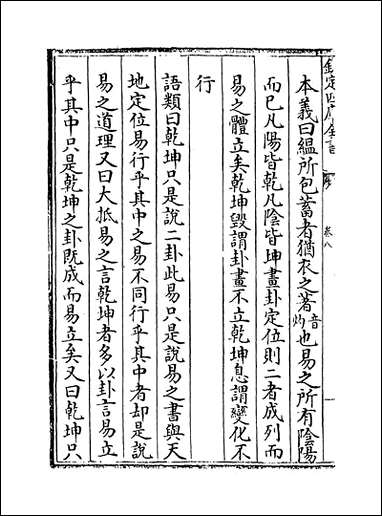 欽定四庫全書
卷八
本義曰緼所包蓄者猶衣之著音灼也易之所有陰陽
而已凡陽皆乾凡陰皆坤畫卦定位則二者成列而
易之體立矣乾坤毁謂卦畫不立乾坤息謂變化不
行
語類曰乾坤只是說二卦此易只是說易之書與天
地定位易行乎其中之易不同行乎其中者却是說
易之道理又曰大抵易之言乾坤者多以卦言易立
乎其中只是乾坤之卦既成而易立矣又曰乾坤只